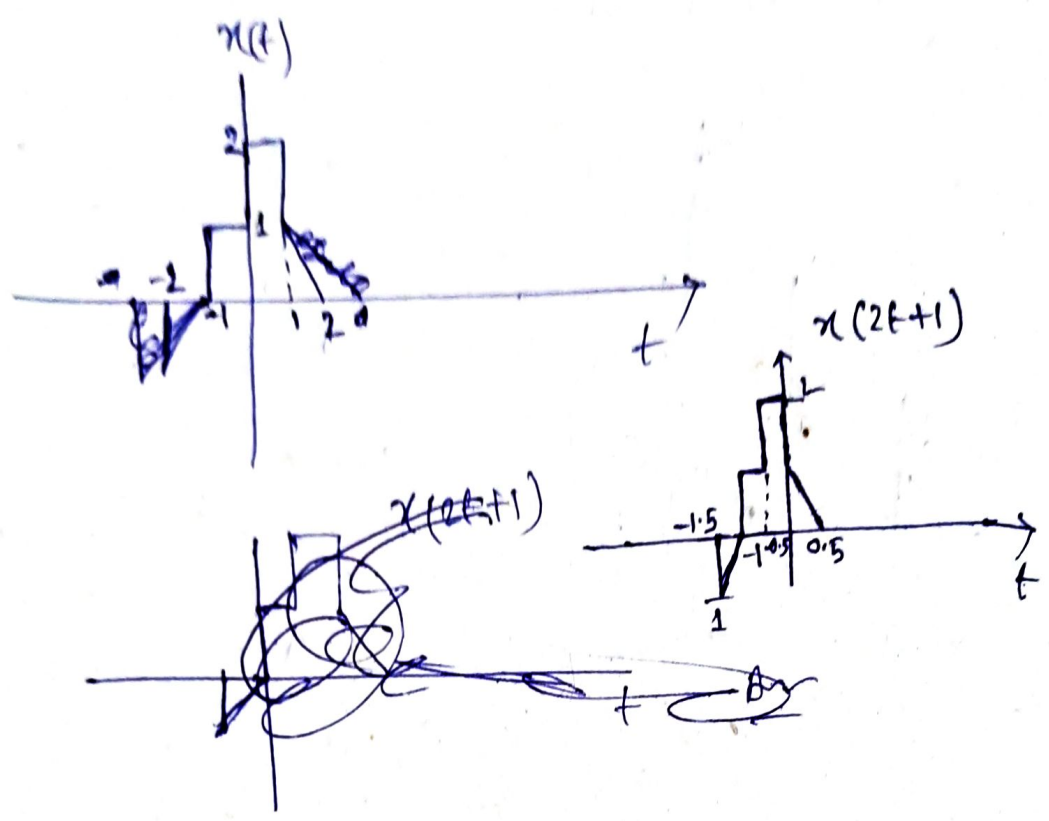 x(t)
2
1
-2
-1 1 2
t
x(2t+1)
1
-1.5
-1 -0.5 0.5
t
1
x(2t+1)
t